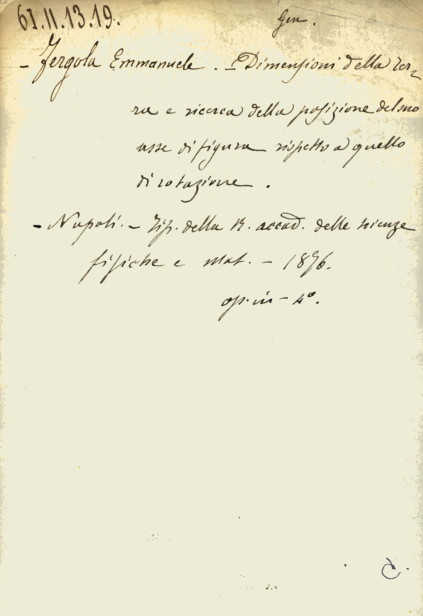 61.11.13.19.
Gen.
- Fergola Emmanuele. - Dimensioni della Ter-
ra e ricerca della posizione del suo
asse di figura rispetto a quello
di rotazione.
- Napoli. - Tip. della R. accad. delle scienze
fisiche e mat. - 1876.
op. in - 4°.
C.